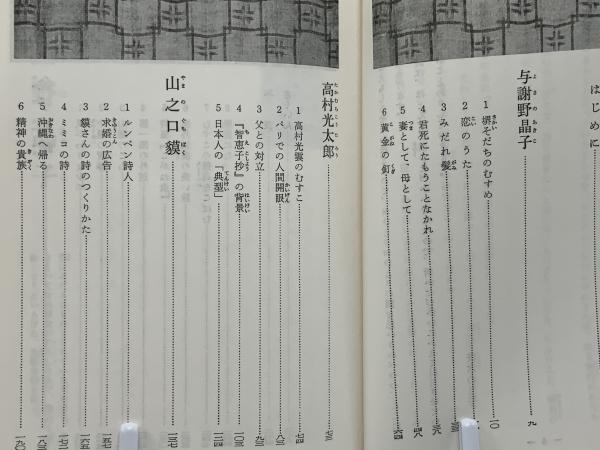 はじめに
与謝野晶子 九
1 堺そだちのむすめ 一〇
2 恋のうた
3 みだれ髪
4 君死にたもうことなかれ 四八
5 妻として、母として
6 黄金の釘 六四
高村光太郎 七三
1 高村光雲のむすこ 七四
2 パリでの人間開眼 八三
3 父との対立 九三
4 『智恵子抄』の背景 一〇三
5 日本人の「典型」 一二四
山之口貘 一三七
1 ルンペン詩人
2 求婚の広告 一五七
3 貘さんの詩のつくりかた
4 ミミコの詩 一七二
5 沖縄へ帰る 一八三
6 精神の貴族 一九〇